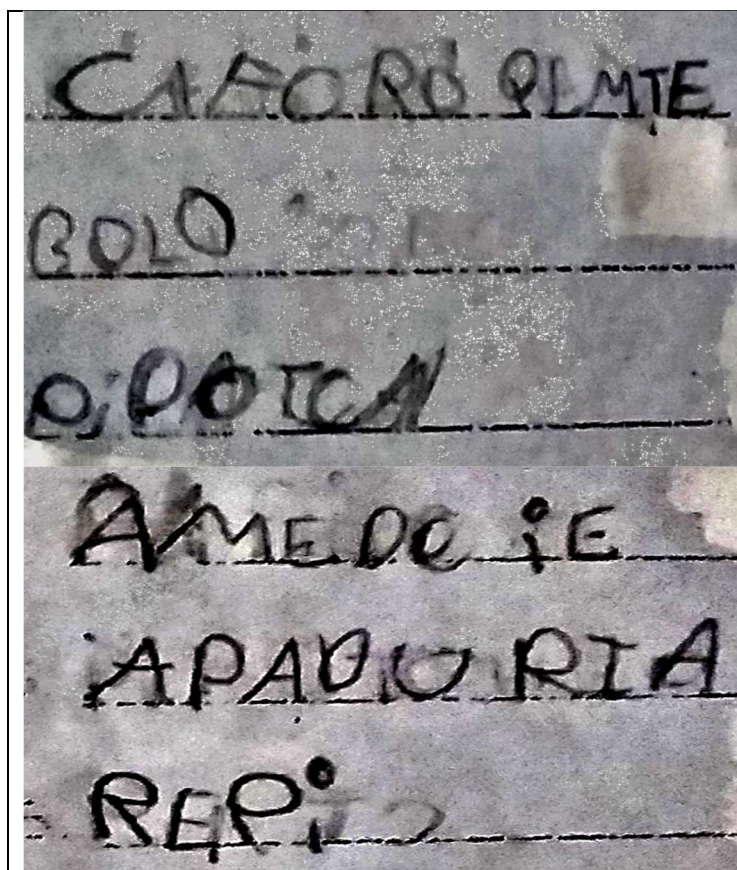 CAFORO QEMTE
BOLO
PIPOTCA
AMEDOIE
APADURIA
REPi